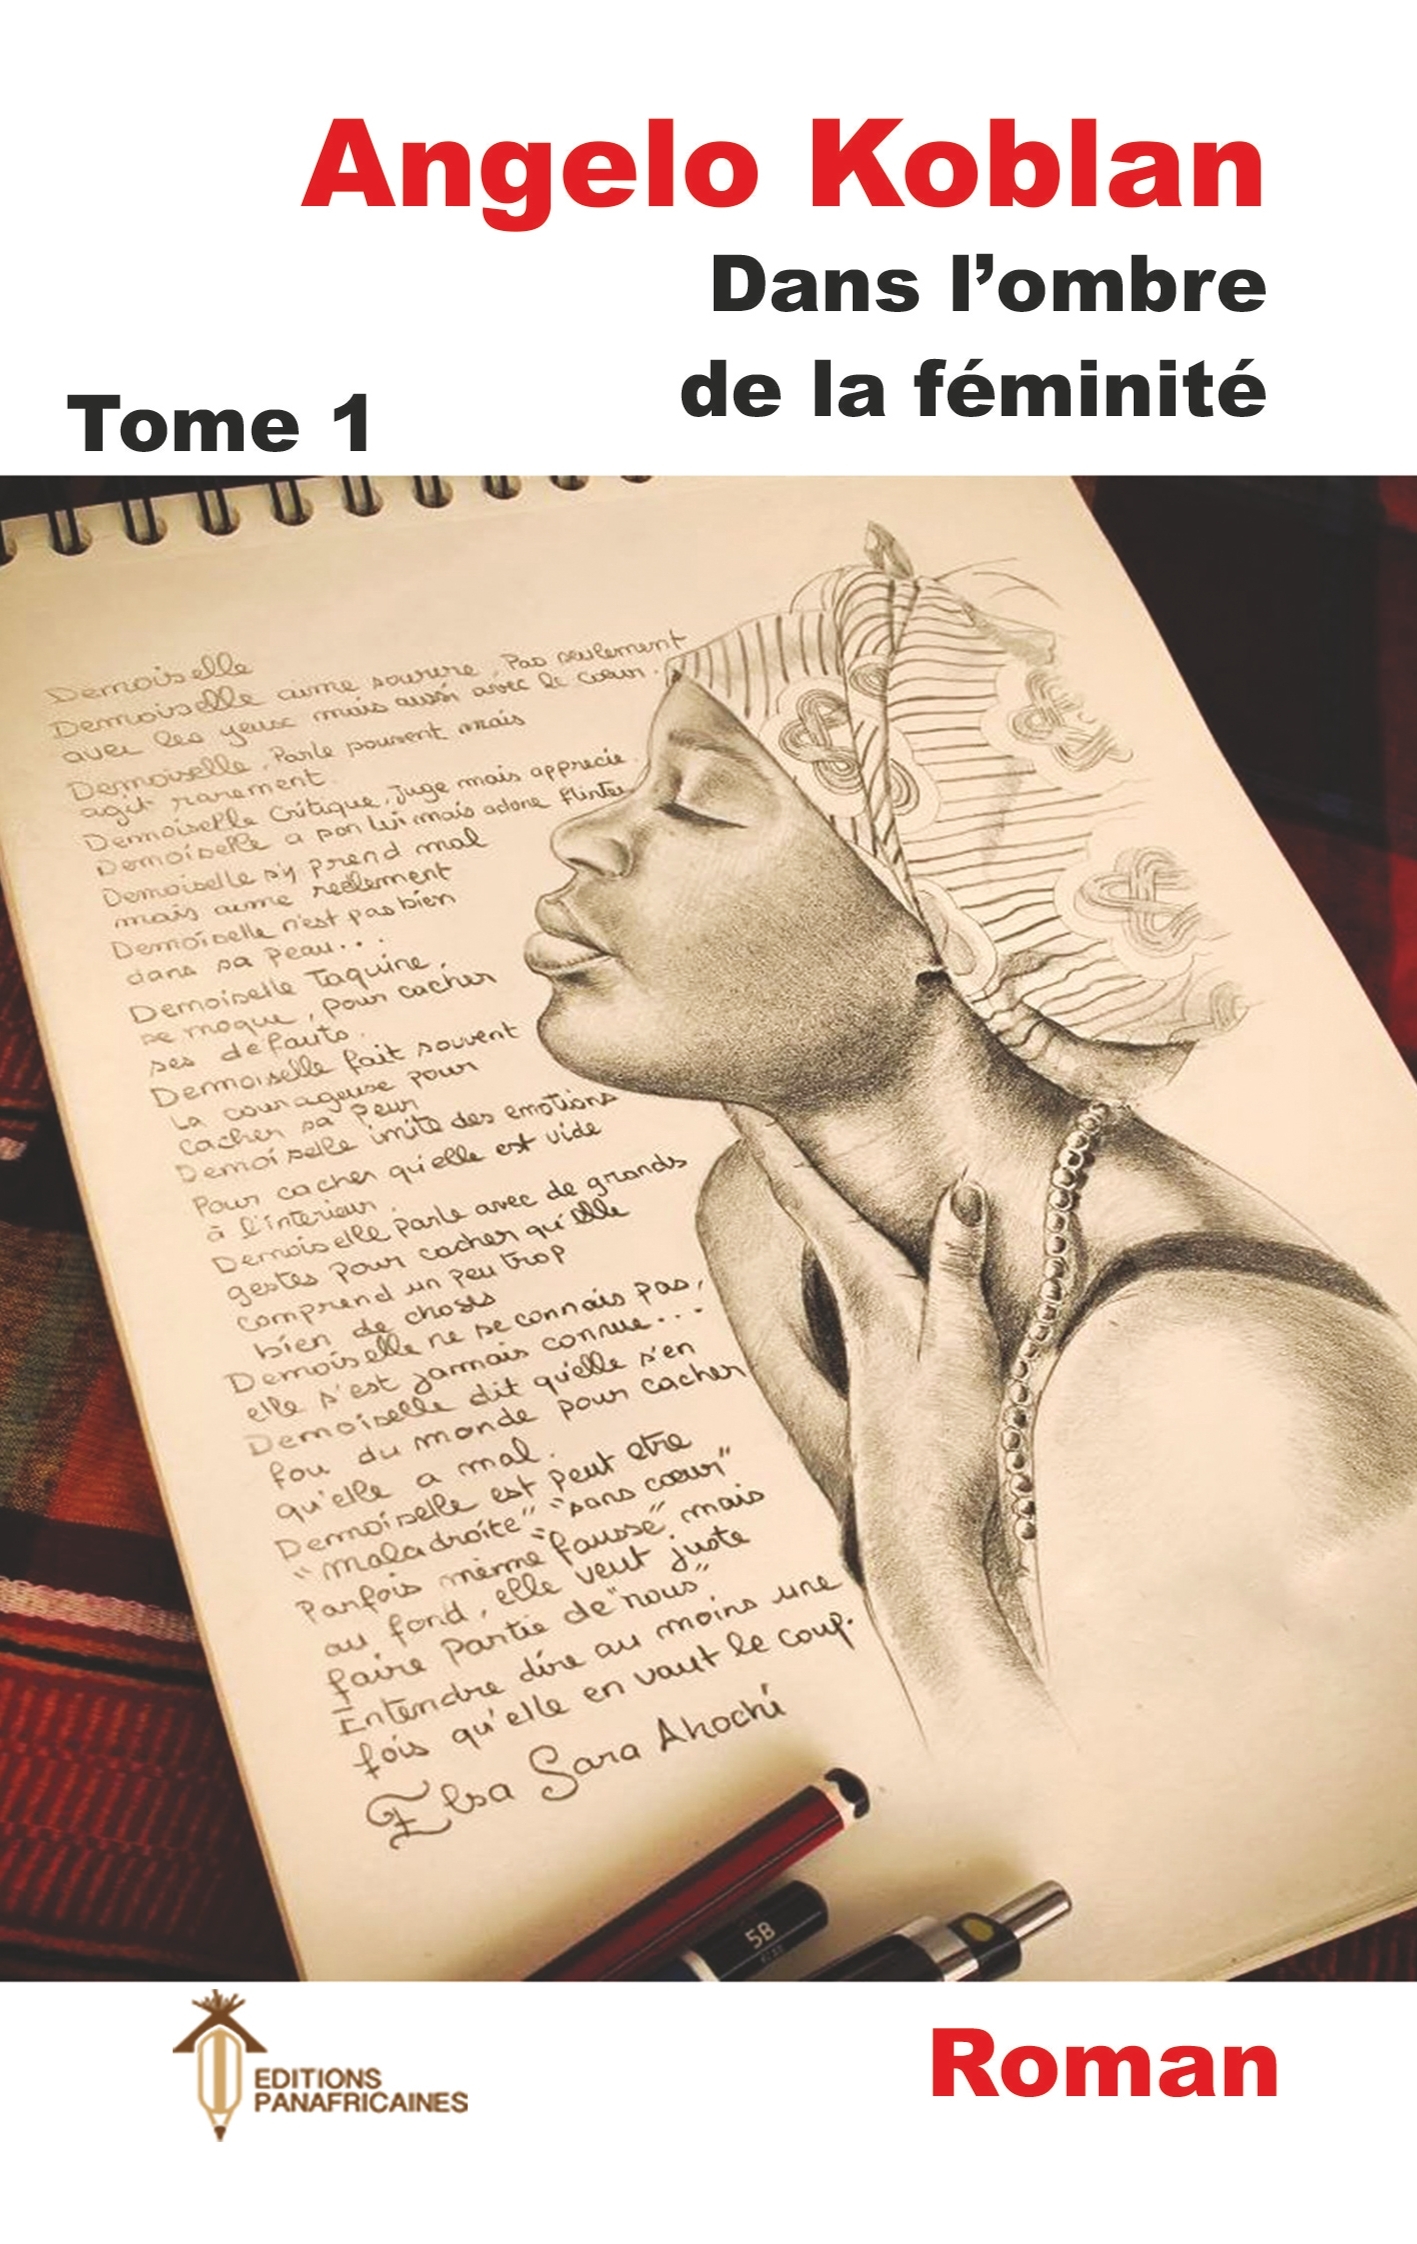 Angelo Koblan
Dans l’ombre
de la féminité
Tome 1
Demoiselle
Demoiselle aime sourire, Pas seulement
avec les yeux mais aussi avec le cœur.
Demoiselle, Parle souvent mais
agit rarement
Demoiselle Critique, juge mais apprecie
Demoiselle a son lui mais adore flirter
Demoiselle s'y prend mal
mais aime reelement
Demoiselle n'est pas bien
dans sa peau...
Demoiselle Taquine,
se moque, pour cacher
ses defauts.
Demoiselle fait souvent
la courageuse pour
cacher sa peur
Demoiselle imite des emotions
Pour cacher qu'elle est vide
à l'interieur.
Demoiselle parle avec de grands
gestes pour cacher qu'elle
comprend un peu trop
bien de choses
Demoiselle ne se connais pas,
elle s'est jamais connue...
Demoiselle dit qu'elle s'en
fou du monde pour cacher
qu'elle a mal.
Demoiselle est peut etre
"maladroite" "sans cœur"
Parfois même "fausse" mais
au fond, elle veut juste
faire partie de "nous"
Entendre dire au moins une
fois qu'elle en vaut le coup.
Elsa Sara Ahochi
5B
EDITIONS
PANAFRICAINES
Roman